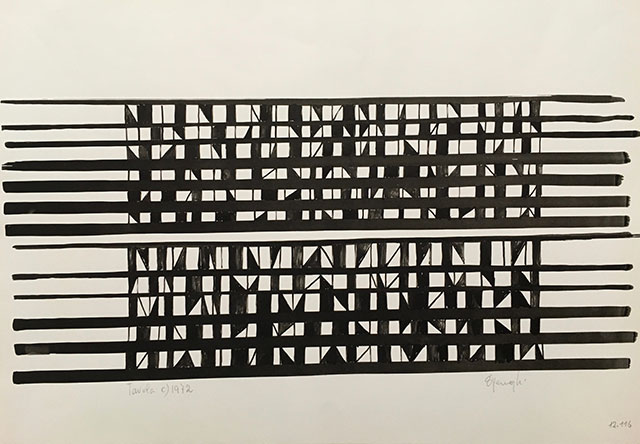 Tavola c) 1972
12.116